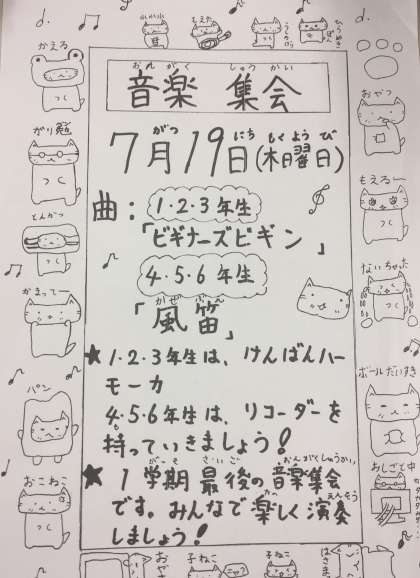 音楽集会
おんがくしゅうかい
7月19日(木曜日)
がつ にち もくようび
曲：1・2・3年生
「ビギナーズビギン」
4・5・6年生
「風笛」
かぜぶえ
★1・2・3年生は、けんばんハー
モーカ
4・5・6年生は、リコーダーを
持っていきましょう！
も
★1学期最後の音楽集会
がっきさいご おんがくしゅうかい
です。みんなで楽しく演奏
たの えんそう
しましょう！
かえる
つくし
がり勉
つくし
とんかつ
つくし
かまってー
パン
おこねこ
つくし
もえた
おやつ
もえるー
ないちゃった
ボールだいすき
おしごと中
カタカタカタ…
子ねこ
子ねこ
はさま